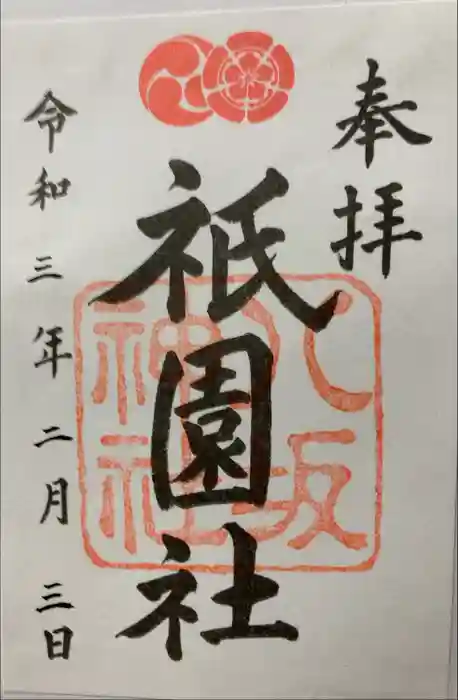 奉拝
祇園社
八坂
神社
令和三年二月三日